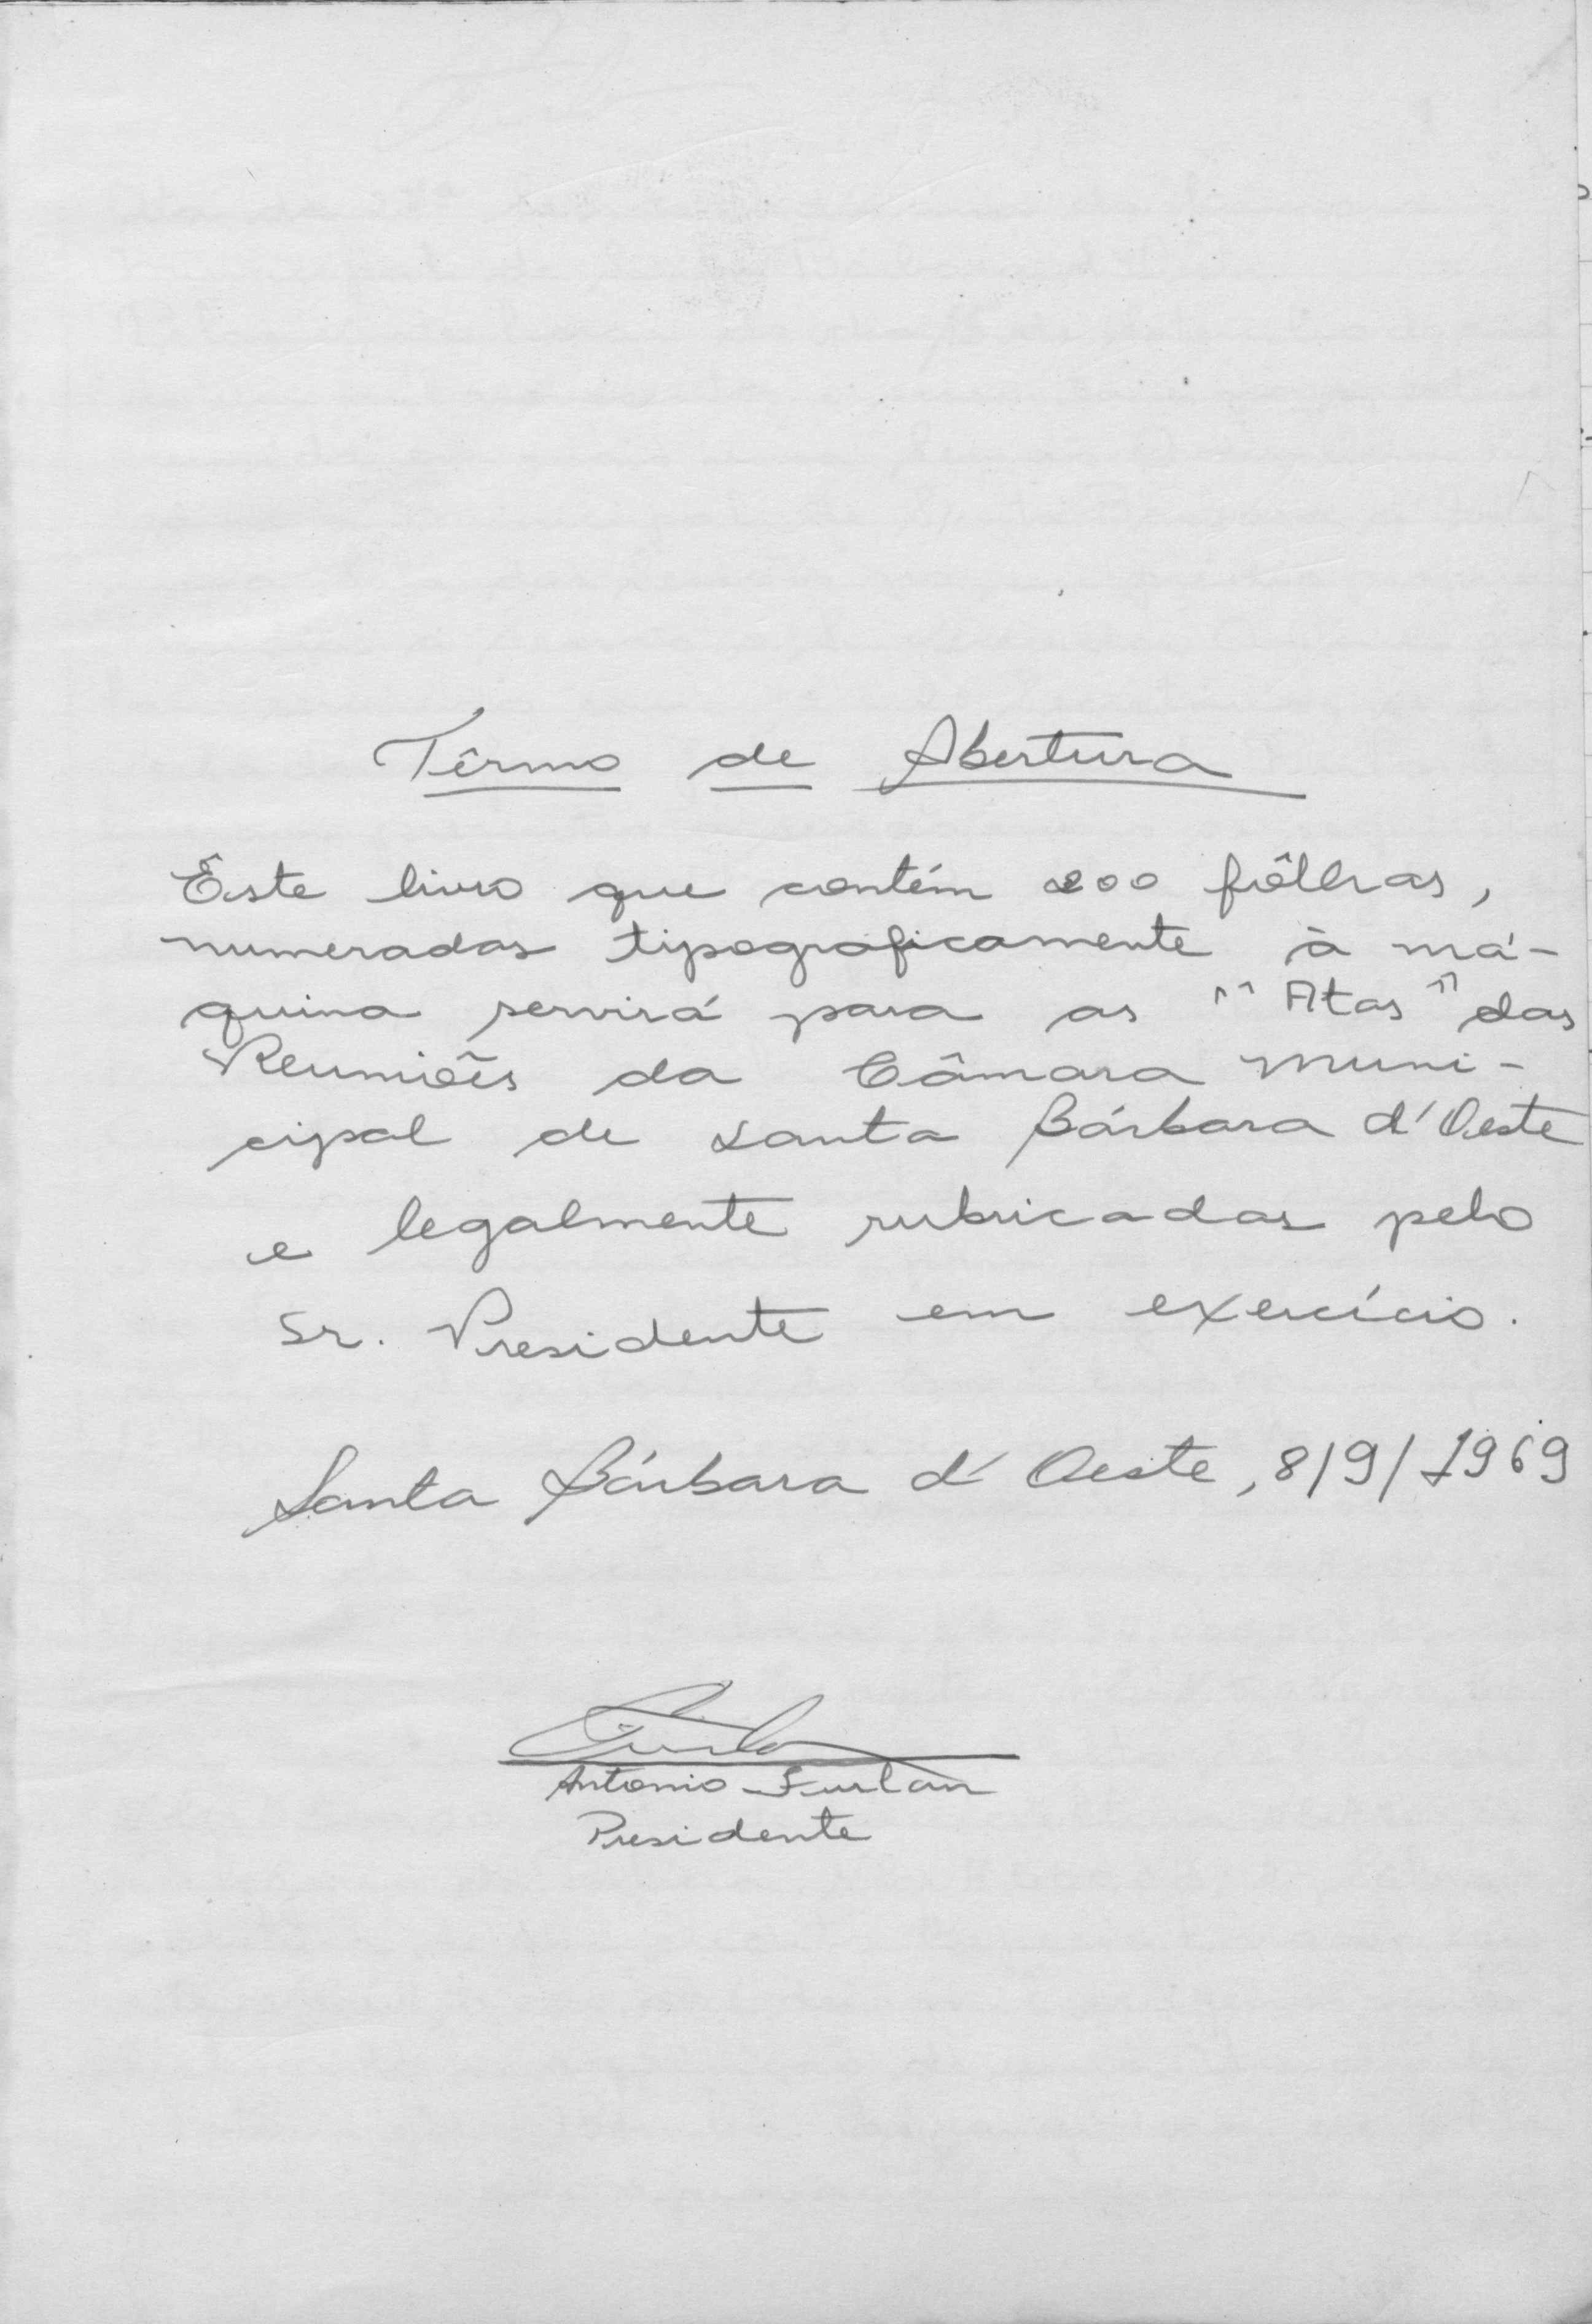 Têrmo de Abertura
Êste livro que contém 200 fôlhas,
numeradas tipograficamente à má-
quina servirá para as "Atas" das
Reuniões da Câmara Muni-
cipal de Santa Bárbara d'Oeste
e legalmente rubricadas pelo
Sr. Presidente em exercício.
Santa Bárbara d'Oeste, 8/9/1969
Antonio Furlan
Presidente